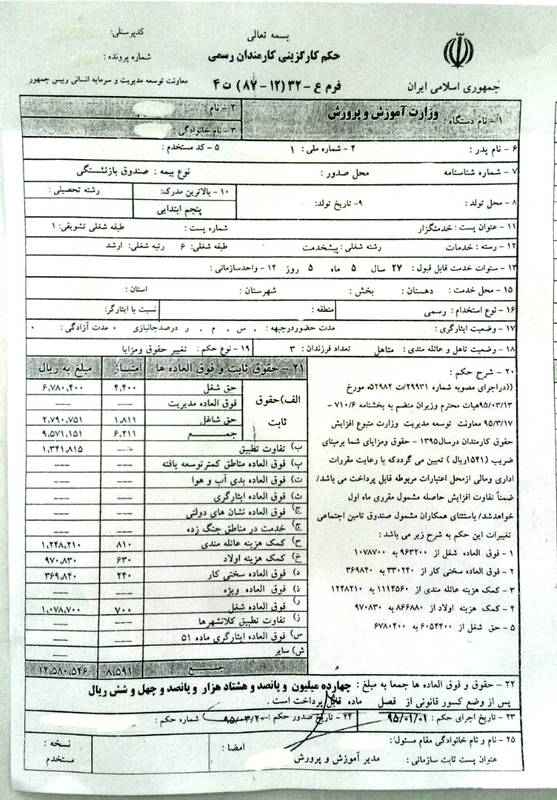 بسمه تعالی
کدپرسنلی:
حکم کارگزینی کارمندان رسمی
شماره پرونده :
فرم ع -۳۲ (۱۲- ۸۷) ت ۴
معاونت توسعه مدیریت و سرمایه انسانی رییس جمهور
جمهوری اسلامی ایران
۱- نام دستگاه : وزارت آموزش و پرورش
۲ - نام :
۳ - نام خانوادگی :
۶ - نام پدر :
۴ - شماره ملی : ۱
۵ - کد مستخدم :
۷ - شماره شناسنامه
محل صدور :
نوع بیمه : صندوق بازنشستگی
۸ - محل تولد :
۹- تاریخ تولد:
۱۰ - بالاترین مدرک:
پنجم ابتدایی
رشته تحصیلی :
۱۱ - عنوان پست : خدمتگزار
شماره پست :
طبقه شغلی تشویقی: ۱
۱۲ - رسته : خدمات
رشته شغلی : پیشخدمت
طبقه شغلی: ۶
رتبه شغلی: ارشد
۱۳ - سنوات خدمت قابل قبول : ۲۷ سال ۵ ماه ۵ روز
۱۴ - واحدسازمانی :
۱۵ - محل خدمت :
دهستان :
بخش :
شهرستان :
استان :
۱۶ - نوع استخدام : رسمی
منطقه :
نسبت با ایثارگر:
۱۷ - وضعیت ایثارگری :
مدت حضوردرجبهه :
درصدجانبازی ۰
مدت آزادگی : ۰
۱۸ - وضعیت تاهل و عائله مندی : متاهل
تعداد فرزندان : ۳
۱۹ - نوع حکم : تغییر حقوق ومزایا
۲۰ - شرح حکم :
((دراجرای مصوبه شماره ۲۹۹۳۱/ت ۵۲۹۸۲ مورخ
۹۵/۰۳/۱۳هیات محترم وزیران منضم به بخشنامه ۷۱۰/۶ -
۹۵/۳/۱۷ معاونت توسعه مدیریت وزارت متبوع افزایش
حقوق کارمندان درسال۱۳۹۵ - حقوق ومزایای شما برمبنای
ضریب (۱۵۴۱ریال) تعیین می گرددکه با رعایت مقررات
اداری ومالی ازمحل اعتبارات مربوطه قابل پرداخت می باشد/
ضمناً تفاوت افزایش حاصله مشمول مقرری ماه اول
خواهدشد/ باستثنای همکاران مشمول صندوق تامین اجتماعی
تغییرات این حکم به شرح زیر می باشد :
۱ - فوق العاده شغل از ۹۶۳۲۰۰ به ۱۰۷۸۷۰۰
۲ - فوق العاده سختی کار از ۳۳۰۲۴۰ به ۳۶۹۸۴۰
۳ - کمک هزینه عائله مندی از ۱۱۱۴۵۶۰ به ۱۲۴۸۲۱۰
۴ - کمک هزینه اولاد از ۸۶۶۸۸۰ به ۹۷۰۸۳۰
۵ - حق شغل از ۶۰۵۴۴۰۰ به ۶۷۸۰۴۰۰
۲۱ - حقوق ثابت و فوق العاده ها امتیاز مبلغ به ریال
الف)حقوق ثابت
حق شغل ۴,۴۰۰ ۶,۷۸۰,۴۰۰
فوق العاده مدیریت ---- ----
حق شاغل ۱,۸۱۱ ۲,۷۹۰,۷۵۱
جمع ۶,۲۱۱ ۹,۵۷۱,۱۵۱
ب) تفاوت تطبیق ---- ۱,۳۴۱,۸۱۵
پ) فوق العاده مناطق کمترتوسعه یافته ---- ----
ت) فوق العاده بدی آب و هوا ---- ----
ث) فوق العاده ایثارگری ---- ----
ج) فوق العاده نشان های دولتی ---- ----
چ) خدمت در مناطق جنگ زده ---- ----
ح) کمک هزینه عائله مندی ۸۱۰ ۱,۲۴۸,۲۱۰
خ) کمک هزینه اولاد ۶۳۰ ۹۷۰,۸۳۰
د) فوق العاده سختی کار ۲۴۰ ۳۶۹,۸۴۰
ذ) فوق العاده ویژه ---- ----
ر) فوق العاده شغل ۷۰۰ ۱,۰۷۸,۷۰۰
ز) تفاوت تطبیق کلانشهرها ---- ----
س) فوق العاده ایثارگری ماده ۵۱ ---- ----
ش) سایر ---- ----
جمع ۸,۵۹۱ ۱۴,۵۸۰,۵۴۶
۲۲ - حقوق و فوق العاده ها جمعا به مبلغ : چهارده میلیون و پانصد و هشتاد هزار و پانصد و چهل و شش ریال
پس از وضع کسور قانونی از فصل ماده قابل پرداخت است .
۲۳ - تاریخ اجرای حکم : ۹۵/۰۱/۰۱
۲۴ - تاریخ صدور حکم : ۹۵/۰۳/۲۰
شماره حکم :
۲۵ - نام و نام خانوادگی مقام مسئول :
امضا :
نسخه :
عنوان پست ثابت سازمانی : مدیر آموزش و پرورش
مستخدم